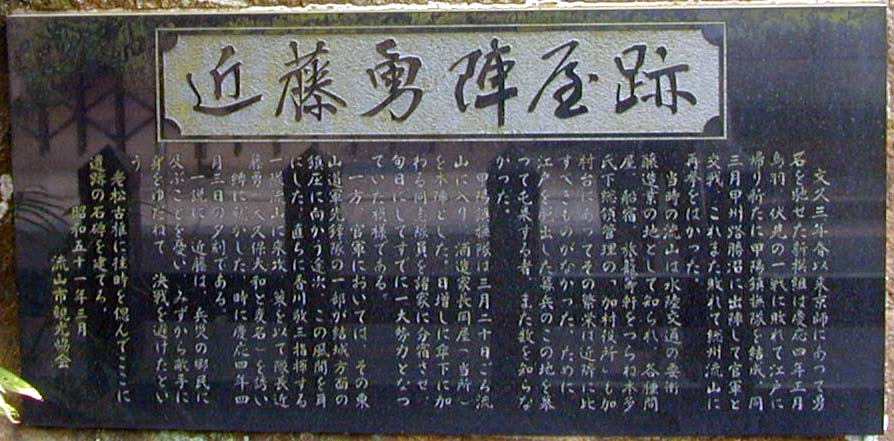 近藤勇陣屋跡
文久三年春以来京師にあって勇
名を馳せた新撰組は慶応四年正月
鳥羽 伏見の一戦に敗れて江戸に
帰り新たに甲陽鎮撫隊を結成、同
三月甲州路勝沼に出陣して官軍と
交戦、これまた敗れて総州流山に
再挙をはかった。
当時の流山は水陸交通の要衝
醸造業の地として知られ、各種問
屋、船宿、旅籠等軒をつらね本多
氏下総領管理の「加村役所」も加
村台にあってその繁栄は近隣に比
すべきものがなかった。ために
江戸を脱出した幕兵のこの地を慕
って屯集する者、また数を知らな
かった。
甲陽鎮撫隊は三月二十日ごろ流
山に入り 酒造家長岡屋(当所)
を本陣とした。日増しに傘下に加
わる同志隊員を諸家に分宿させ、
旬日にしてすでに一大勢力となっ
ていた模様である。
一方、官軍においては、その東
山道軍先鋒隊の一部が結城方面の
鎮圧に向かう途次、この風聞を耳
にした。直ちに香川敬三指揮する
一隊流山に来攻 策を以て隊長近
藤勇(大久保大和と変名)を誘い
縛に就かした。時に慶応四年四
月三日の夕刻である。
一説に、近藤は、兵災の郷民に
及ぶことを憂い、みずから敵手に
身をゆだねて 決戦を避けたとい
う
老松古椎に往時を偲んでここに
遺跡の石碑を建てる。
昭和五十一年三月
流山市観光協会